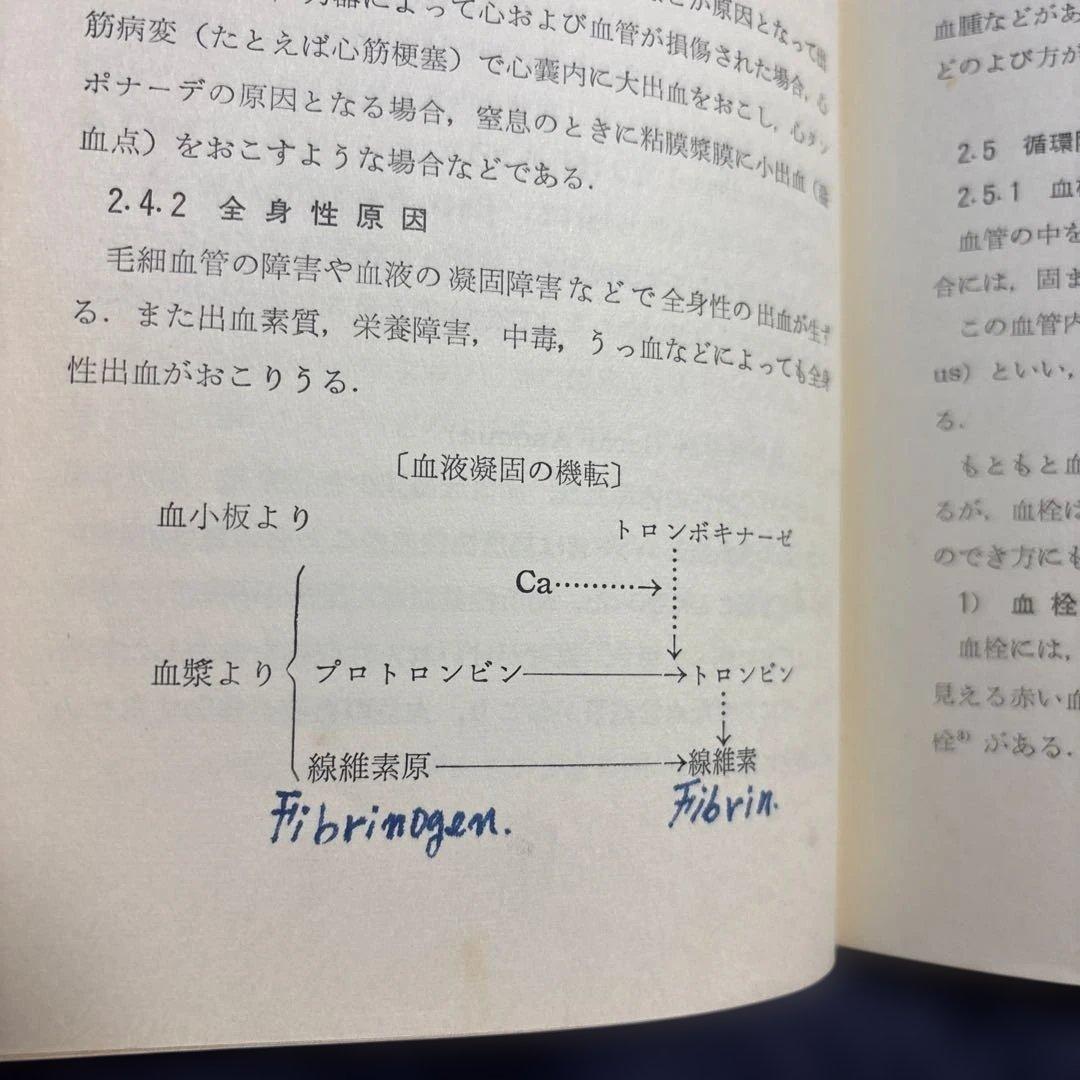 が原因となって出
によって心および血管が損傷された場合，心
筋病変（たとえば心筋梗塞）で心嚢内に大出血をおこし，心タン
ポナーデの原因となる場合，窒息のときに粘膜漿膜に小出血（溢
血点）をおこすような場合などである．
2.4.2 全身性原因
毛細血管の障害や血液の凝固障害などで全身性の出血が生ず
る．また出血素質，栄養障害，中毒，うっ血などによっても全身
性出血がおこりうる．
〔血液凝固の機転〕
血小板より
トロンボキナーゼ
Ca
血漿より
プロトロンビン
トロンビン
線維素原
線維素
Fibrinogen.
Fibrin.
血腫などがあ
どのよび方が
2.5 循環
2.5.1 血
血管の中を
合には，固ま
この血管内
us）といい，
る．
もともと血
るが，血栓は
のでき方にも
1） 血栓
血栓には，
見える赤い血
栓 がある．